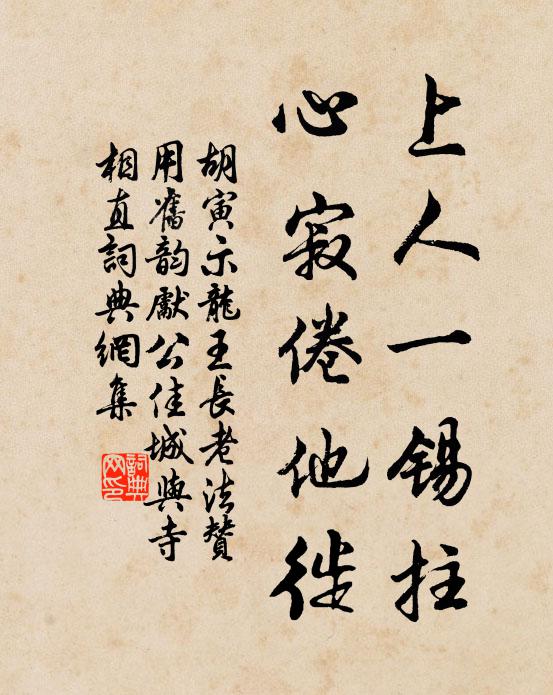 上人一锡拄
心寂倦他徙
胡寅示龍王長老法贊
用舊韵獻公佳城與寺
相直詞典網集
詞典
网印